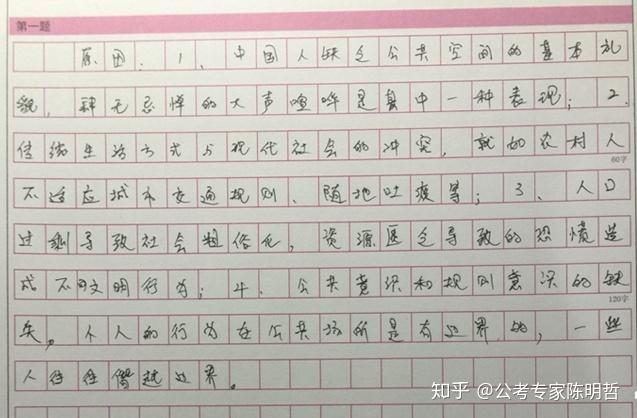 第一题
原因:1、中国人缺乏公共空间的基本礼
貌,肆无忌惮的大声喧哗是其中一种表现;2、
传统生活方式与现代社会的冲突,就如农村人
60字
不适应城市交通规则、随地吐痰等;3、人口
过剩导致社会粗俗化,资源匮乏导致的造
成不文明行为;4、公共意识和规则意识的缺
120字
失,个人的行为在公共场所是有边界的,一些
人往往僭越边界。
知乎 @公考专家陈明哲